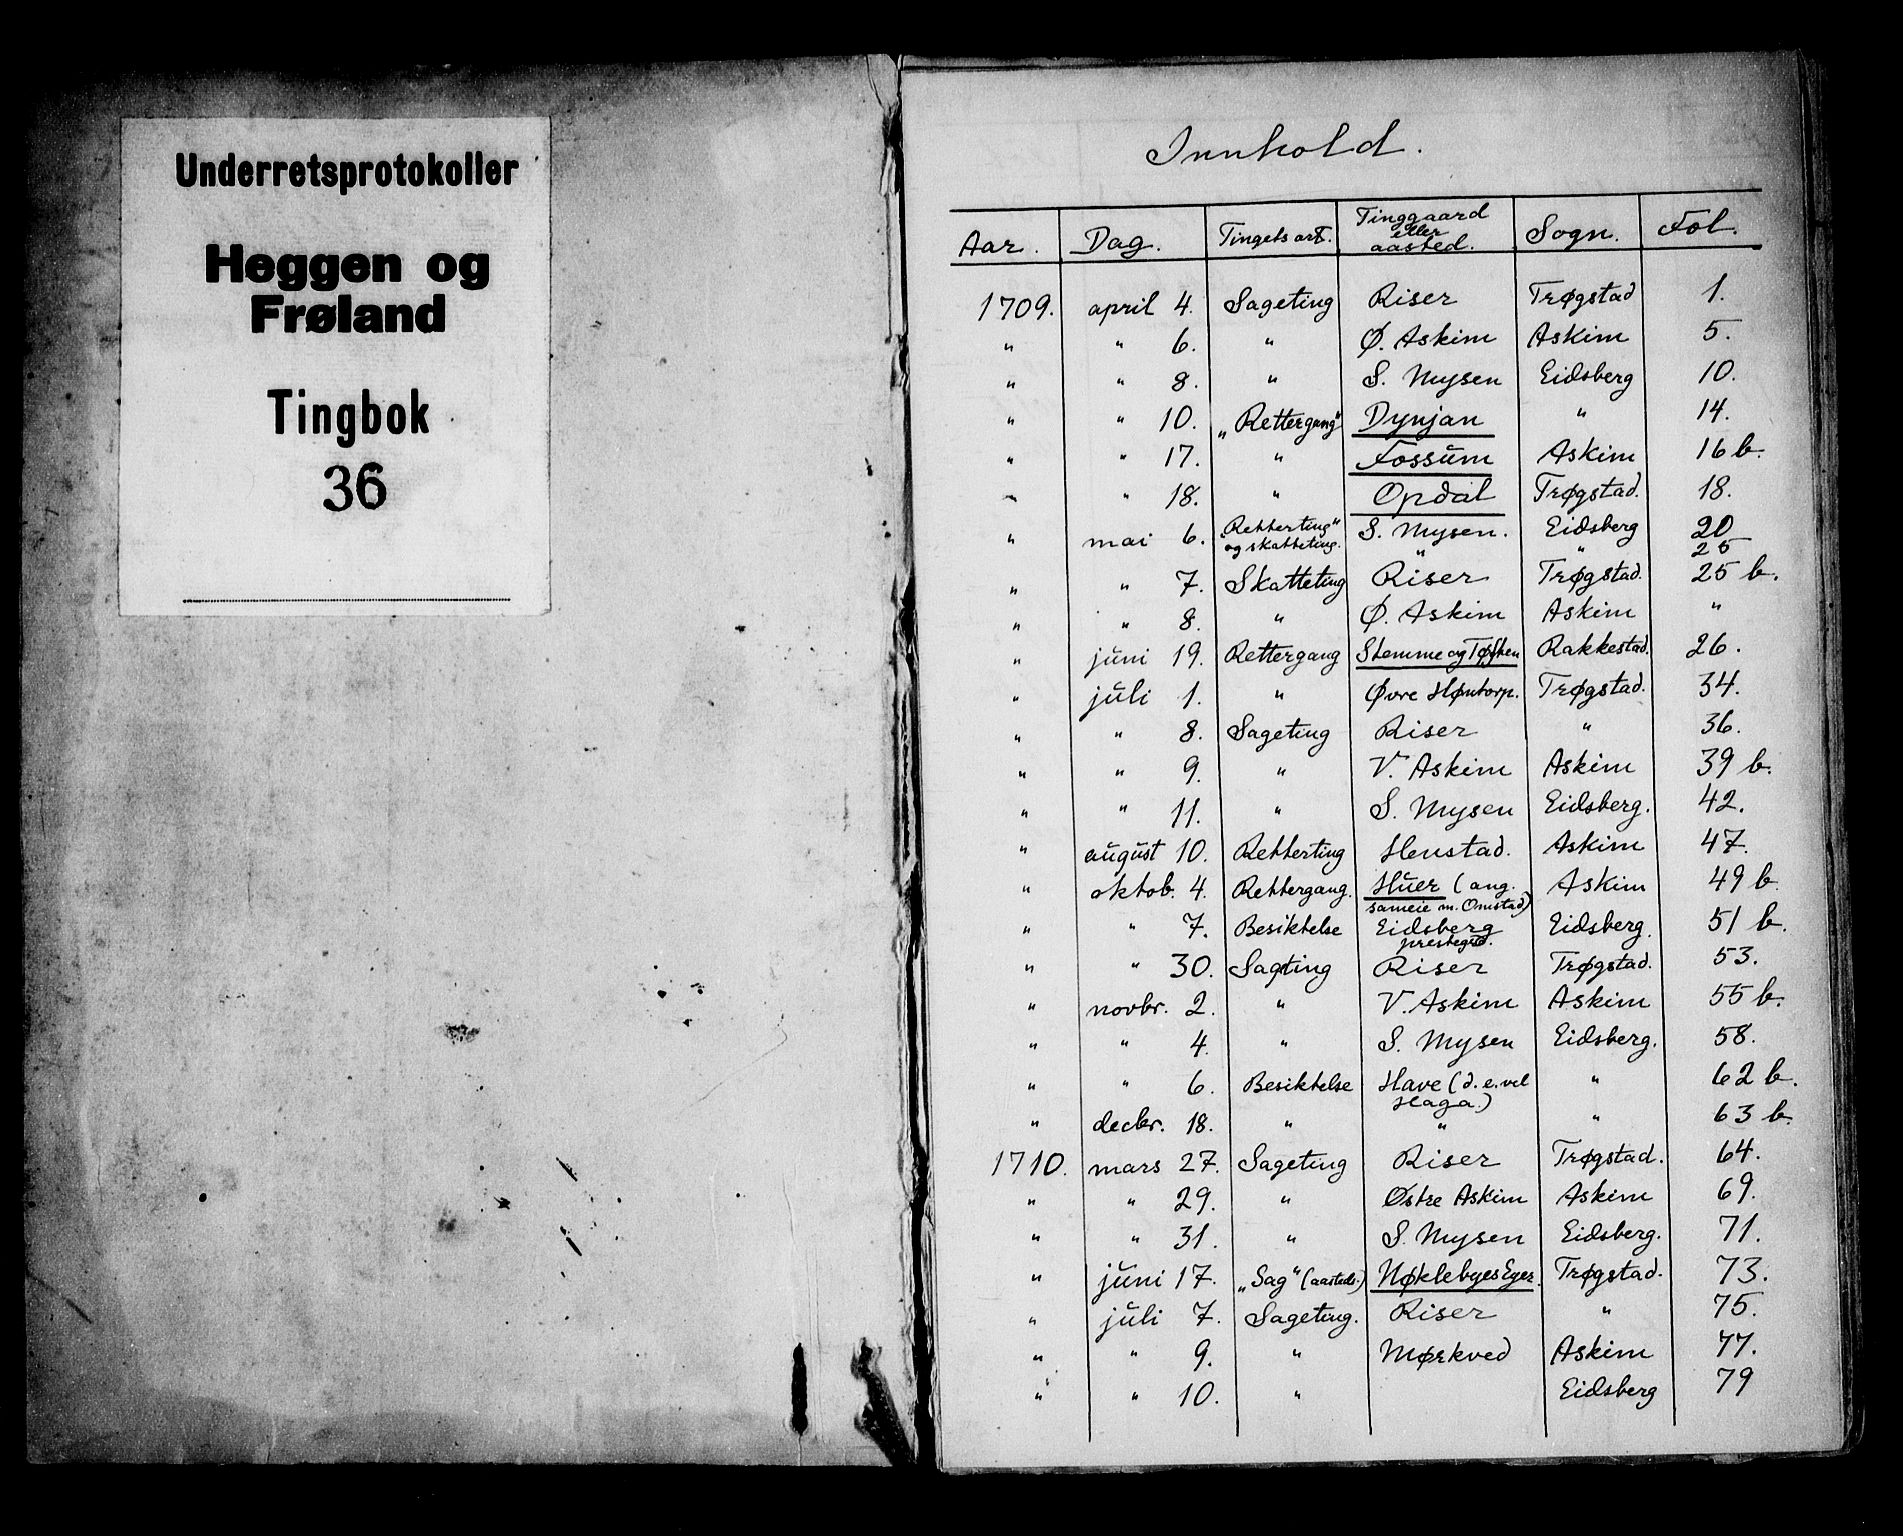 Underretsprotokoller
Heggen og
Frøland
Tingbok
36
Innhold.
Aar. Dag. Tingets art. Tinggaard eller aasted. Sogn. Fol.
1709. april 4. Sageting Riser Trøgstad 1.
" " 6. " Ø. Askim Askim 5.
" " 8. " S. Mysen Eidsberg 10.
" " 10. „Rettergang" Dynjan " 14.
" " 17. " Fossum Askim 16 b.
" " 18. " Opdal Trøgstad. 18.
" mai 6. „Retterting" S. Mysen. Eidsberg 20
og skatteting. " " 25
" " 7. Skatteting Riser Trøgstad. 25 b.
" " 8. " Ø. Askim Askim "
" juni 19. Rettergang Stemme og Tøften Rakkestad. 26.
" juli 1. " Øvre Høntorp. Trøgstad. 34.
" " 8. Sageting Riser " 36.
" " 9. " V. Askim Askim 39 b.
" " 11. " S. Mysen Eidsberg. 42.
" august 10. Retterting Henstad. Askim 47.
" oktob. 4. Rettergang. Huer (ang. Askim 49 b
sameie m. Onstad)
" " 7. Besiktelse Eidsberg Eidsberg. 51 b.
prestegrd.
" " 30. Sagting Riser Trøgstad. 53.
" novbr. 2. " V. Askim Askim 55 b.
" " 4. " S. Mysen Eidsberg. 58.
" " 6. Besiktelse Have (d.e. vel " 62 b.
Haga.)
" decbr. 18. " " " 63 b.
1710. mars 27. Sageting Riser Trøgstad. 64.
" " 29. " Østre Askim Askim 69.
" " 31. " S. Mysen Eidsberg. 71.
" juni 17. „Sag" (aasteds.) Nøklebyes Eger. Trøgstad. 73.
" juli 7. Sageting. Riser " 75.
" " 9. " Mørkved Askim 77.
" " 10. " Eidsberg 79